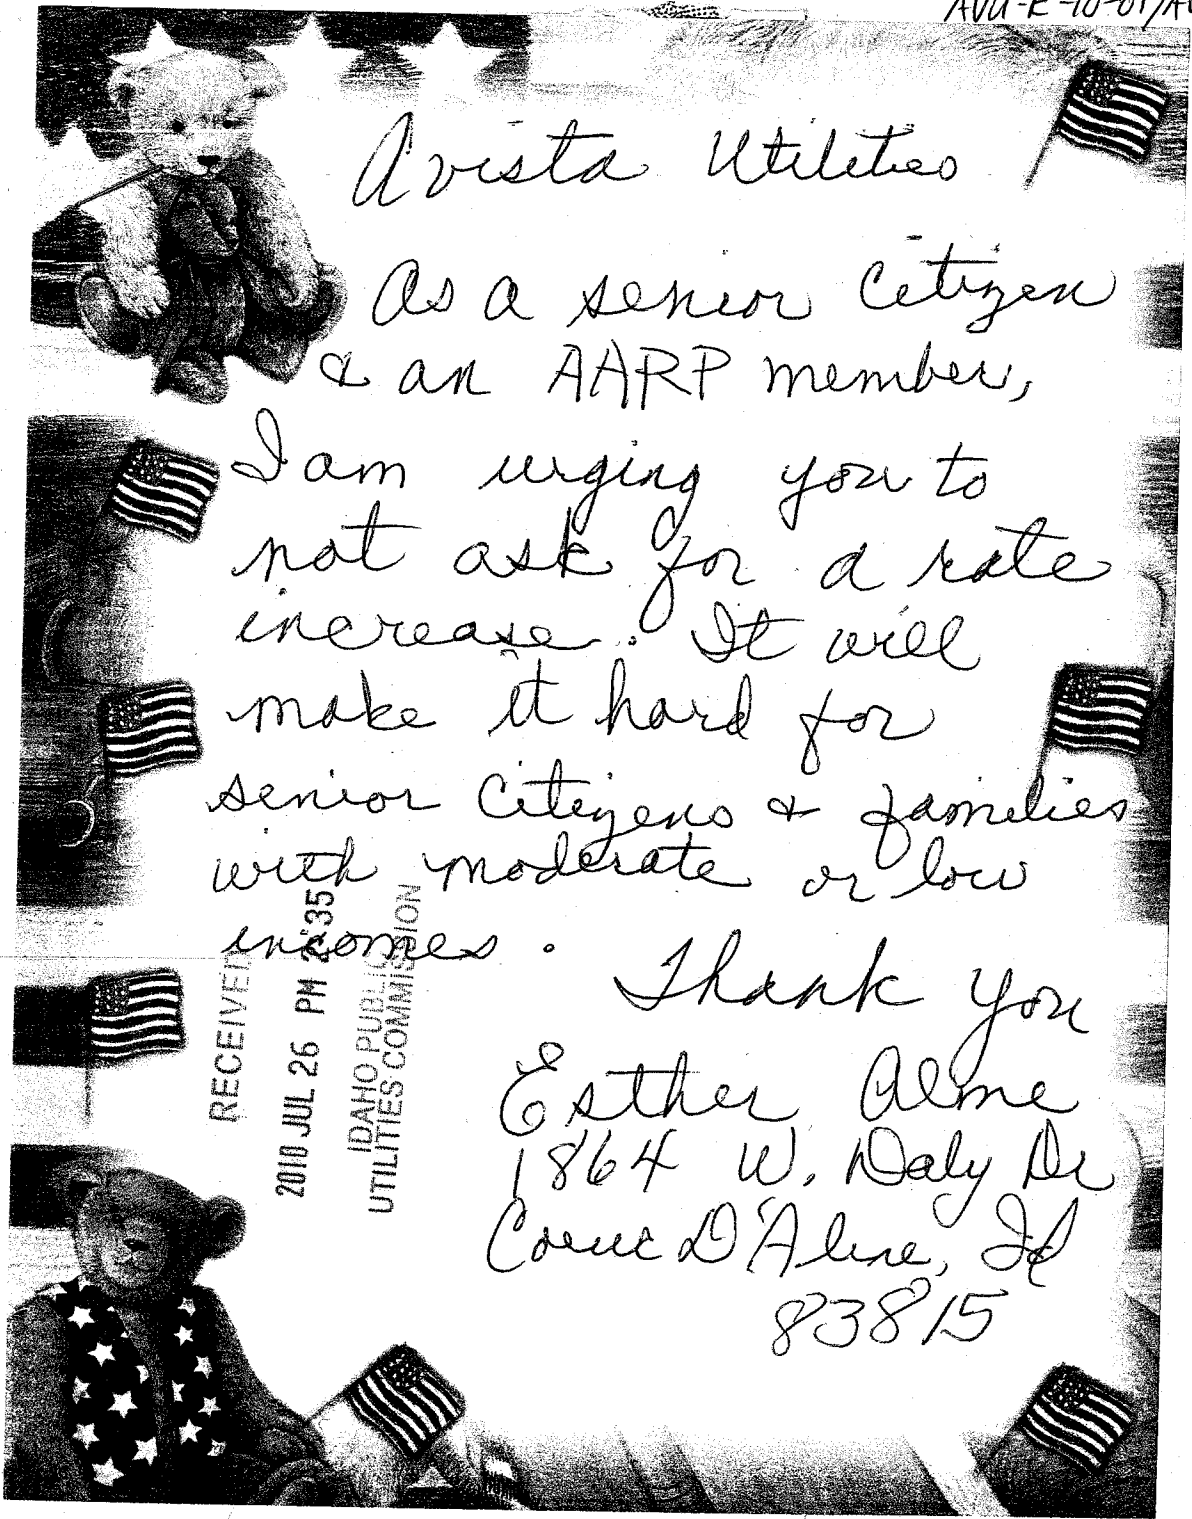 Avista Utilities
As a senior citizen
& an AARP member,
I am urging you to
not ask for a rate
increase. It will
make it hard for
senior citizens & families
with moderate or low
incomes.
Thank you
Esther Alme
1864 W. Daly Dr
Coeuc D'Alene, Id
83815
RECEIVED
2010 JUL 26 PM 2:35
IDAHO PUBLIC
UTILITIES COMMISSION